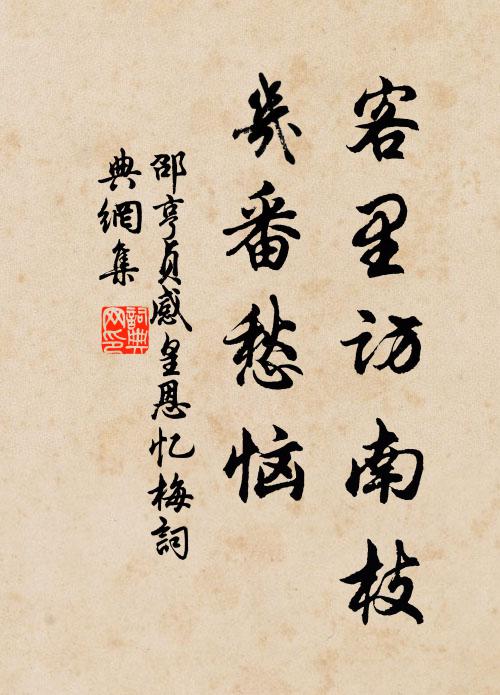 客里访南枝
几番愁恼
邵亨贞感皇恩忆梅詞
典網集
詞典网印